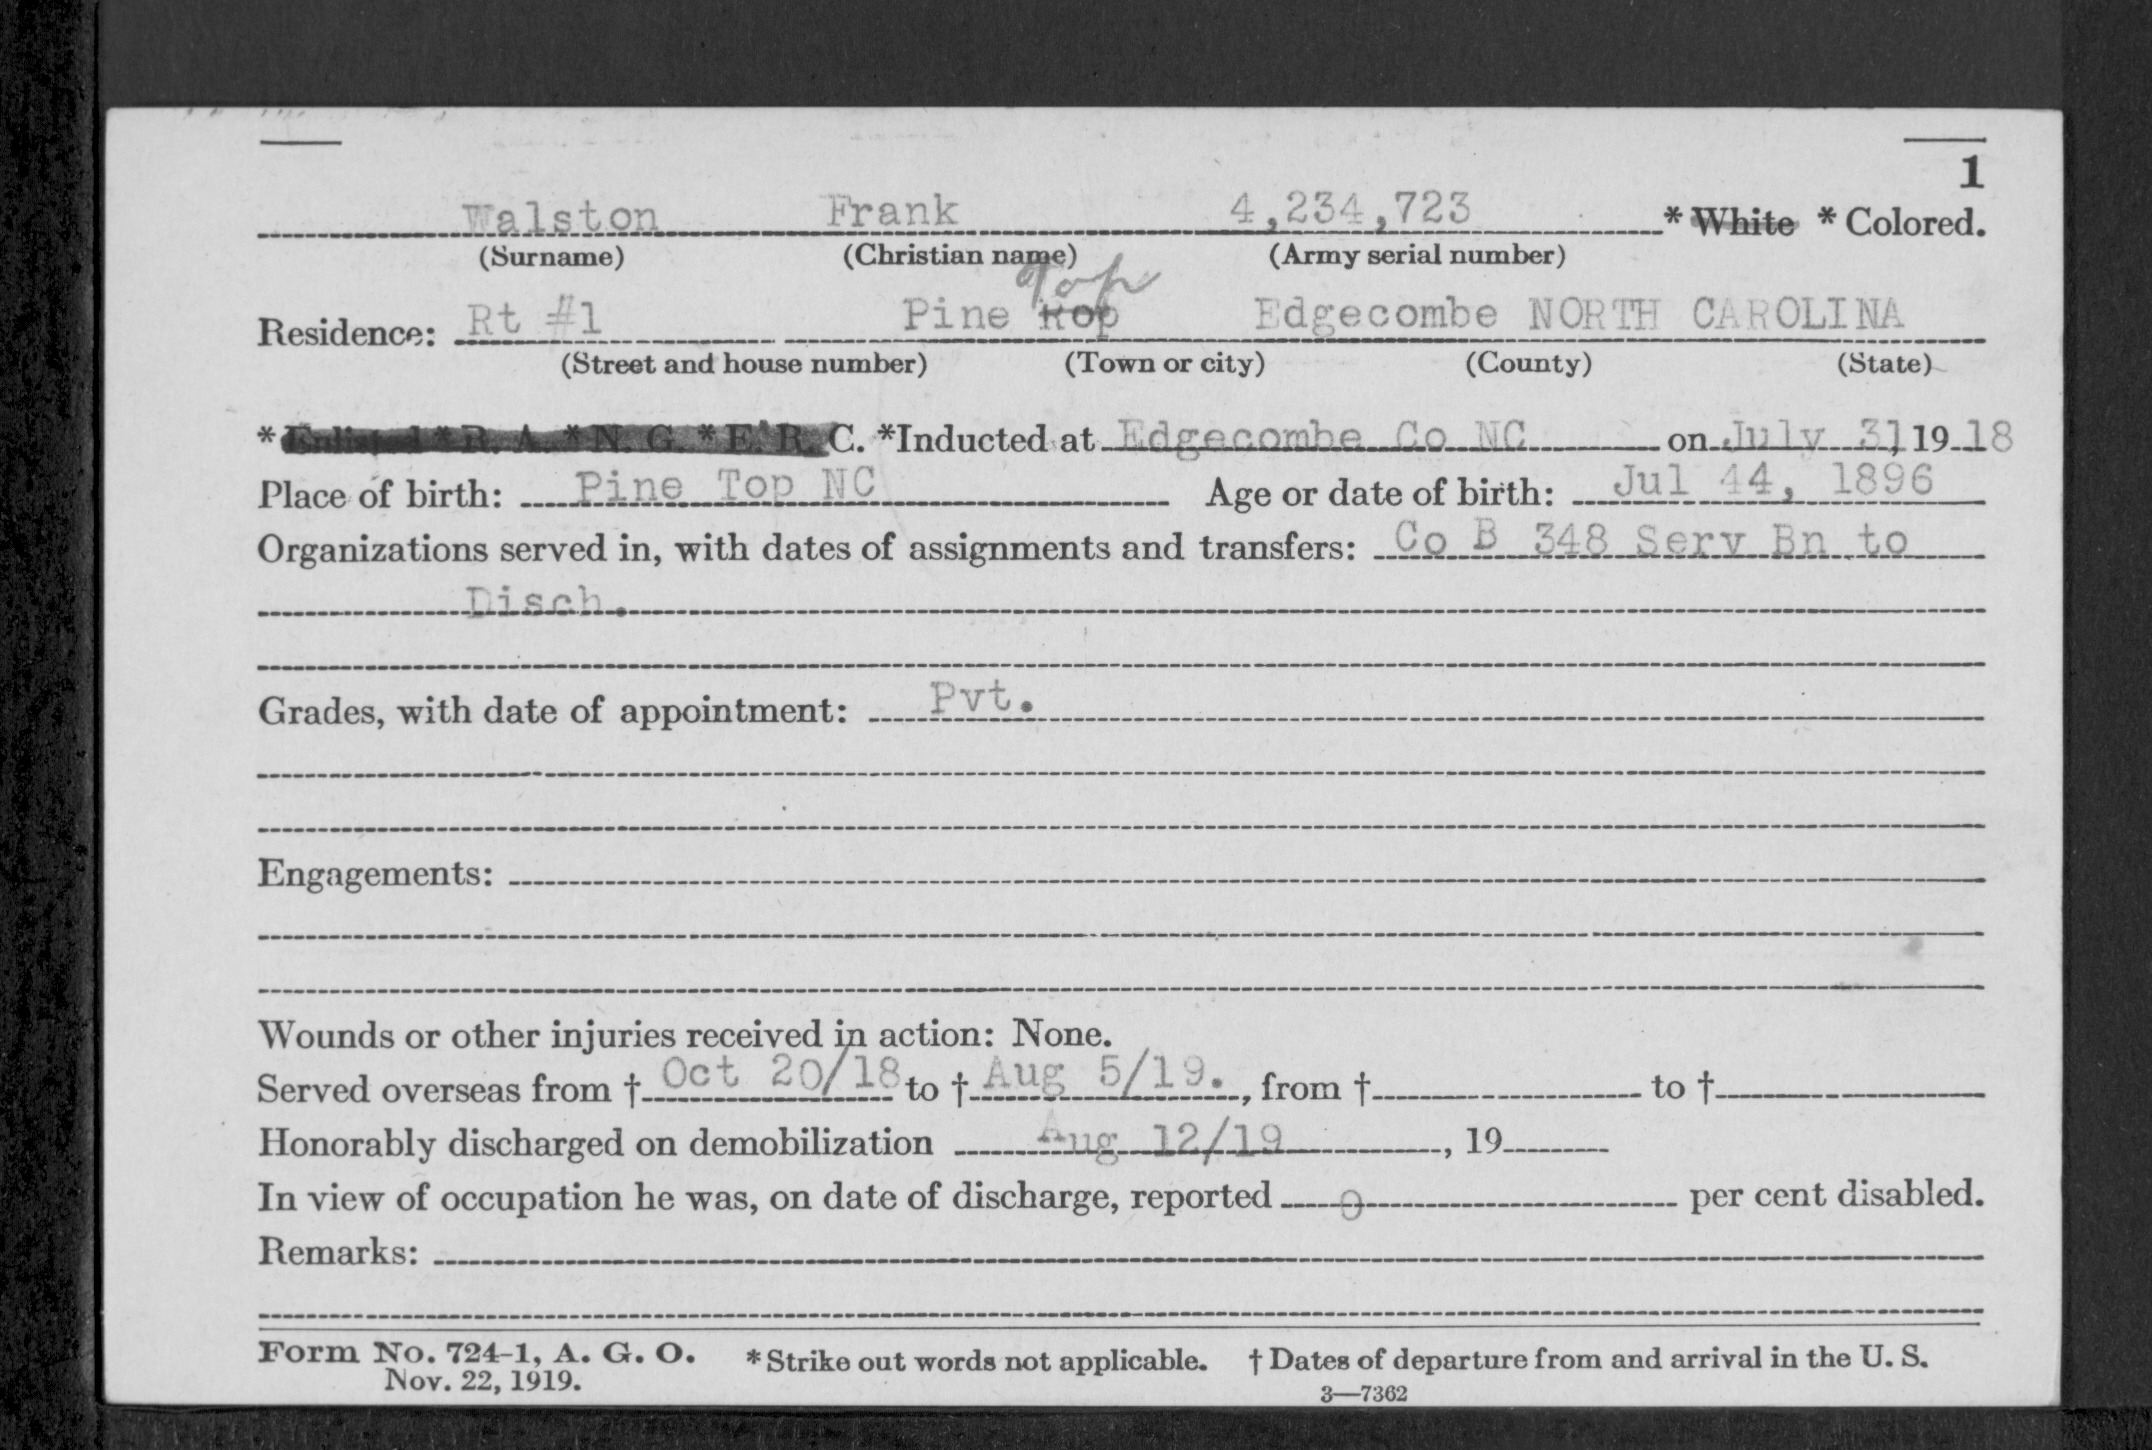 1
Walston Frank 4,234,723 * White * Colored.
(Surname) (Christian name) (Army serial number)
Top
Residence: Rt #1 Pine Rop Edgecombe NORTH CAROLINA
(Street and house number) (Town or city) (County) (State)
* Enlisted * R. A. * N. G. * E. R. C. *Inducted at Edgecombe Co NC on July 31, 19 18
Place of birth: Pine Top NC Age or date of birth: Jul 44, 1896
Organizations served in, with dates of assignments and transfers: Co B 348 Serv Bn to
Disch.
Grades, with date of appointment: Pvt.
Engagements:
Wounds or other injuries received in action: None.
Served overseas from † Oct 20/18 to † Aug 5/19., from † to †
Honorably discharged on demobilization Aug 12/19, 19
In view of occupation he was, on date of discharge, reported 0 per cent disabled.
Remarks:
Form No. 724-1, A. G. O. * Strike out words not applicable. † Dates of departure from and arrival in the U. S.
Nov. 22, 1919.
3—7362